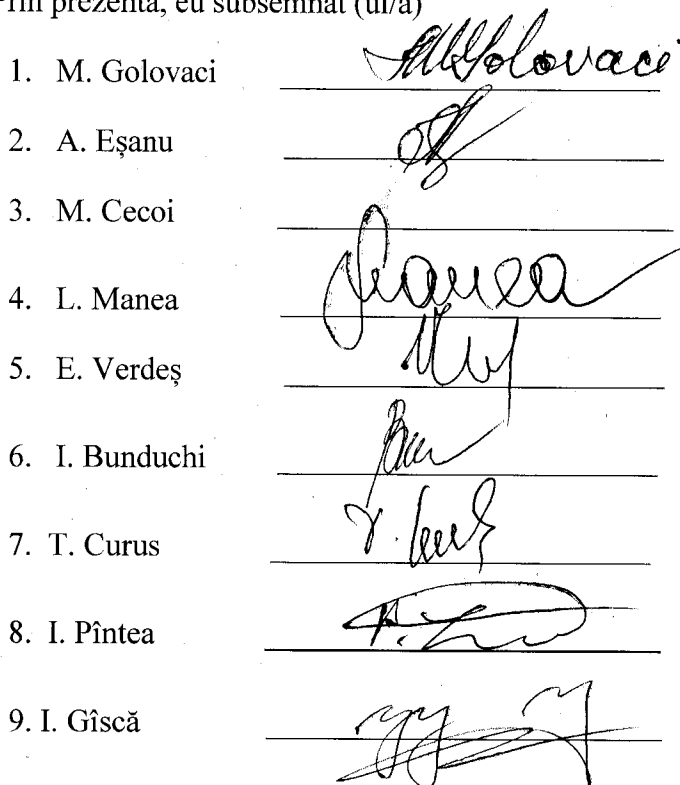 Prin prezenta, eu subsemnat (ul/a)
1. M. Golovaci Golovaci
2. A. Eșanu
3. M. Cecoi
4. L. Manea Manea
5. E. Verdeș
6. I. Bunduchi
7. T. Curus
8. I. Pîntea
9. I. Gîscă